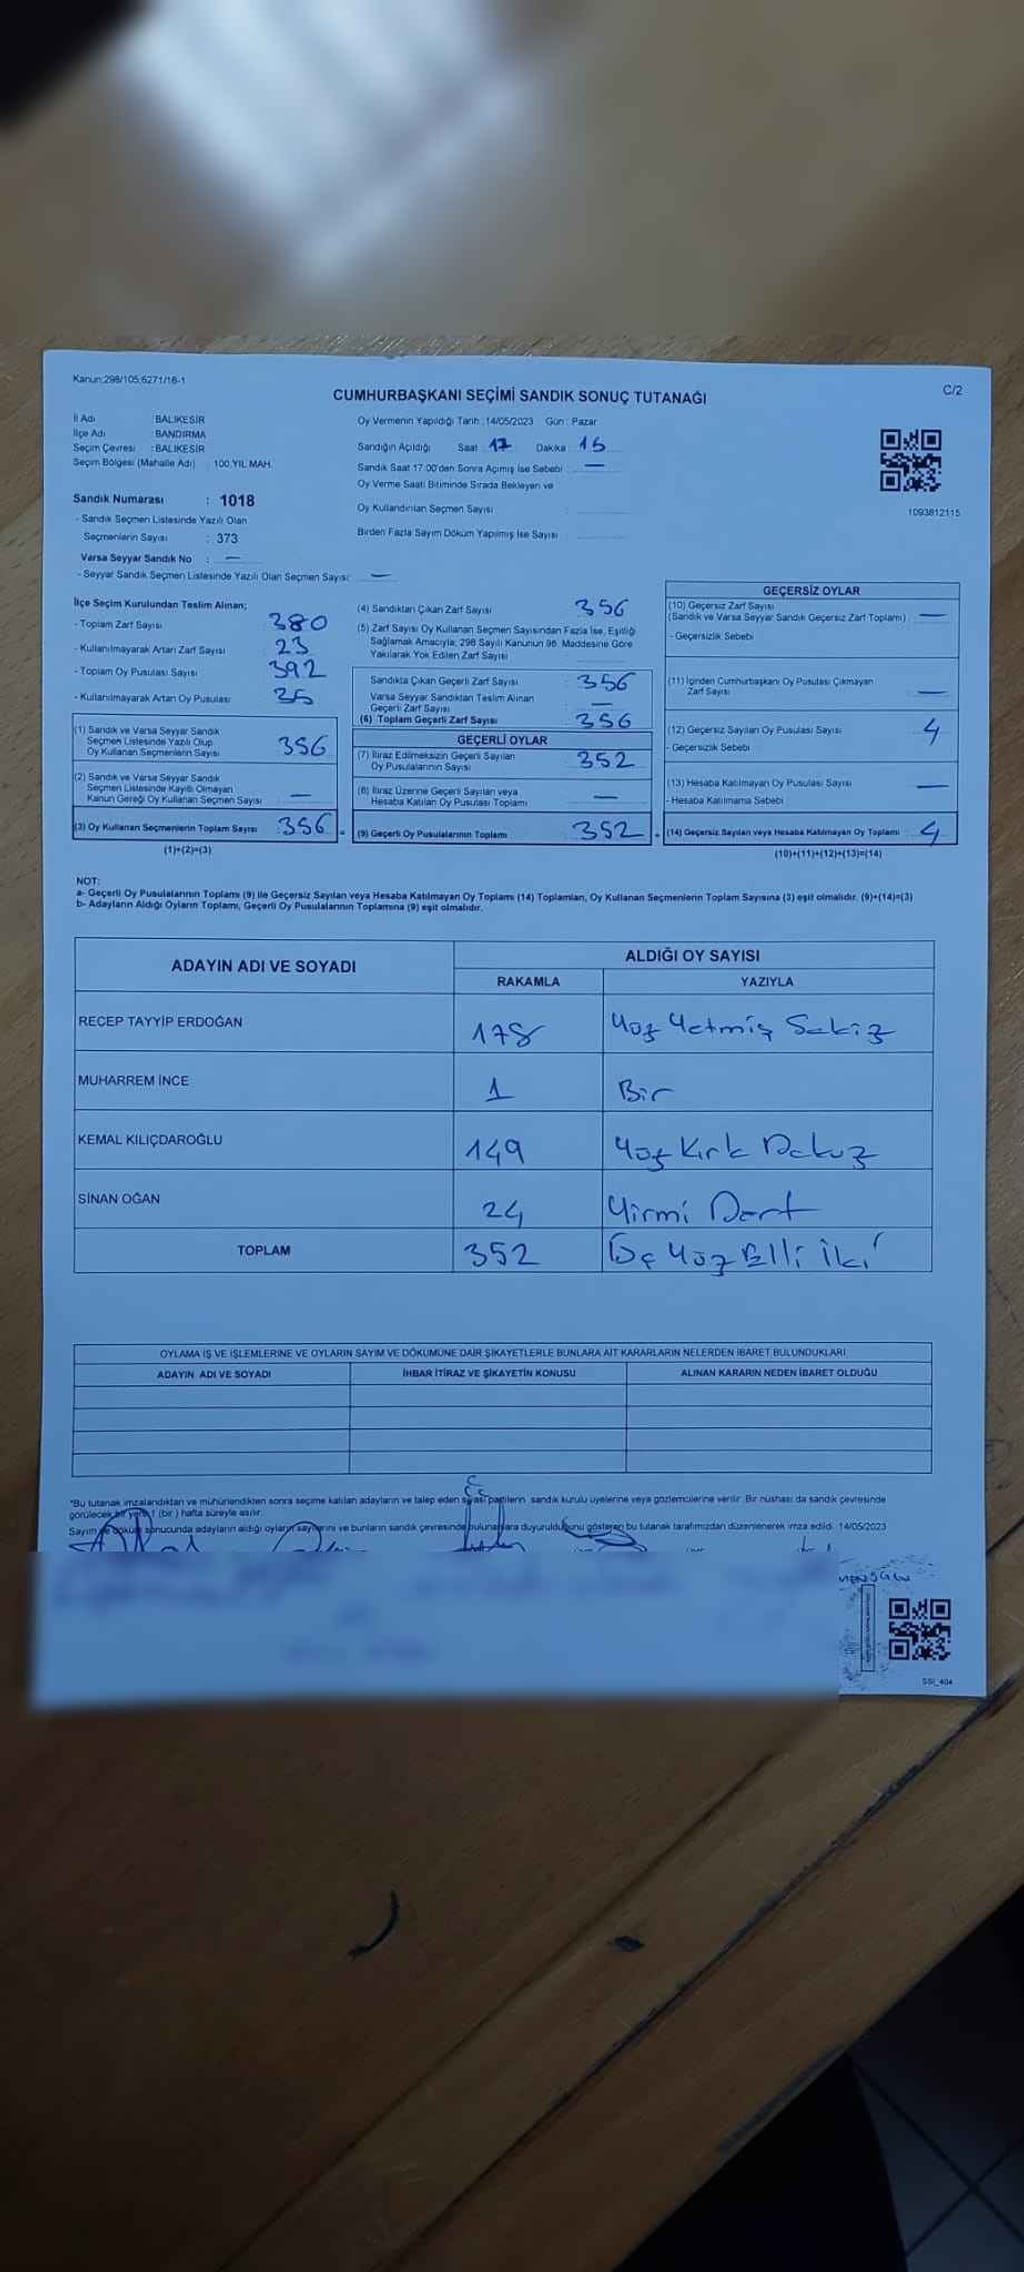 Kanun:298/105;6271/16-1
CUMHURBAŞKANI SEÇİMİ SANDIK SONUÇ TUTANAĞI
C/2
İl Adı BALIKESİR
İlçe Adı BANDIRMA
Seçim Çevresi : BALIKESİR
Seçim Bölgesi (Mahalle Adı) 100.YIL MAH.
Oy Vermenin Yapıldığı Tarih : 14/05/2023 Gün : Pazar
Sandığın Açıldığı Saat 17 Dakika 15
Sandık Saat 17.00'den Sonra Açımış İse Sebebi : —
Oy Verme Saati Bitiminde Sırada Bekleyen ve
Oy Kullandırılan Seçmen Sayısı :
Birden Fazla Sayım Döküm Yapılmış İse Sayısı :
1093812115
Sandık Numarası : 1018
- Sandık Seçmen Listesinde Yazılı Olan
Seçmenlerin Sayısı : 373
Varsa Seyyar Sandık No : —
- Seyyar Sandık Seçmen Listesinde Yazılı Olan Seçmen Sayısı: —
İlçe Seçim Kurulundan Teslim Alınan;
- Toplam Zarf Sayısı 380
- Kullanılmayarak Artan Zarf Sayısı 23
- Toplam Oy Pusulası Sayısı 392
- Kullanılmayarak Artan Oy Pusulası 35
(1) Sandık ve Varsa Seyyar Sandık
Seçmen Listesinde Yazılı Olup
Oy Kullanan Seçmenlerin Sayısı 356
(2) Sandık ve Varsa Seyyar Sandık
Seçmen Listesinde Kayıtlı Olmayan
Kanun Gereği Oy Kullanan Seçmen Sayısı —
(3) Oy Kullanan Seçmenlerin Toplam Sayısı 356
(1)+(2)=(3)
(4) Sandıktan Çıkan Zarf Sayısı 356
(5) Zarf Sayısı Oy Kullanan Seçmen Sayısından Fazla İse, Eşitliği
Sağlamak Amacıyla; 298 Sayılı Kanunun 98. Maddesine Göre
Yakılarak Yok Edilen Zarf Sayısı
Sandıkta Çıkan Geçerli Zarf Sayısı : 356
Varsa Seyyar Sandıktan Teslim Alınan
Geçerli Zarf Sayısı : —
(6) Toplam Geçerli Zarf Sayısı 356
GEÇERLİ OYLAR
(7) İtiraz Edilmeksizin Geçerli Sayılan
Oy Pusulalarının Sayısı 352
(8) İtiraz Üzerine Geçerli Sayılan veya
Hesaba Katılan Oy Pusulası Toplamı —
(9) Geçerli Oy Pusulalarının Toplamı 352
GEÇERSİZ OYLAR
(10) Geçersiz Zarf Sayısı
(Sandık ve Varsa Seyyar Sandık Geçersiz Zarf Toplamı) —
- Geçersizlik Sebebi
(11) İçinden Cumhurbaşkanı Oy Pusulası Çıkmayan
Zarf Sayısı —
(12) Geçersiz Sayılan Oy Pusulası Sayısı 4
- Geçersizlik Sebebi
(13) Hesaba Katılmayan Oy Pusulası Sayısı —
- Hesaba Katılmama Sebebi
(14) Geçersiz Sayılan veya Hesaba Katılmayan Oy Toplamı 4
(10)+(11)+(12)+(13)=(14)
NOT:
a- Geçerli Oy Pusulalarının Toplamı (9) ile Geçersiz Sayılan veya Hesaba Katılmayan Oy Toplamı (14) Toplamları, Oy Kullanan Seçmenlerin Toplam Sayısına (3) eşit olmalıdır. (9)+(14)=(3)
b- Adayların Aldığı Oyların Toplamı, Geçerli Oy Pusulalarının Toplamına (9) eşit olmalıdır.
ADAYIN ADI VE SOYADI ALDIĞI OY SAYISI
RAKAMLA YAZIYLA
RECEP TAYYİP ERDOĞAN 178 Yüz Yetmiş Sekiz
MUHARREM İNCE 1 Bir
KEMAL KILIÇDAROĞLU 149 Yüz Kırk Dokuz
SİNAN OĞAN 24 Yirmi Dört
TOPLAM 352 Üç Yüz Elli İki
OYLAMA İŞ VE İŞLEMLERİNE VE OYLARIN SAYIM VE DÖKÜMÜNE DAİR ŞİKAYETLERLE BUNLARA AİT KARARLARIN NELERDEN İBARET BULUNDUKLARI
ADAYIN ADI VE SOYADI İHBAR İTİRAZ VE ŞİKAYETİN KONUSU ALINAN KARARIN NEDEN İBARET OLDUĞU
"Bu tutanak imzalandıktan ve mühürlendikten sonra seçime katılan adayların ve talep eden siyasi partilerin sandık kurulu üyelerine veya gözlemcilerine verilir. Bir nüshası da sandık çevresinde
görülecek bir yere 1 (bir ) hafta süreyle asılır.
Sayım ve döküm sonucunda adayların aldığı oyların sayılarını ve bunların sandık çevresinde bulunanlara duyurulduğunu gösteren bu tutanak tarafımızdan düzenlenerek imza edildi. 14/05/2023
SSI_404